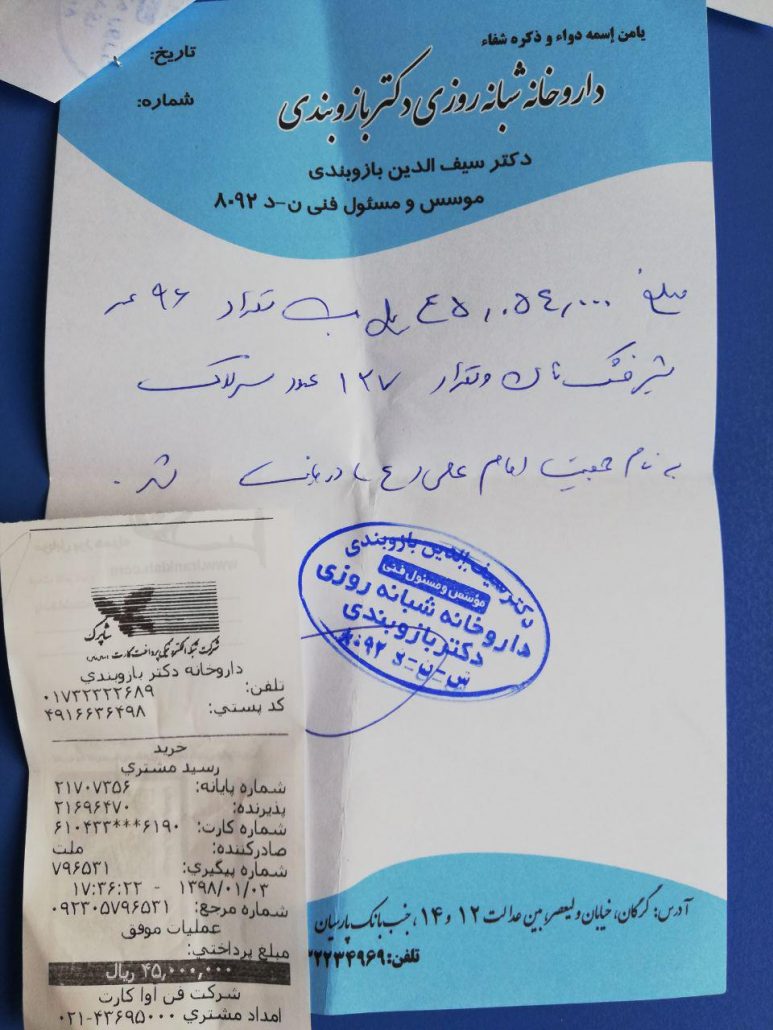 یامن إسمه دواء و ذکره شفاء
تاریخ:
داروخانه شبانه روزی دکتر بازوبندی
شماره:
دکتر سیف الدین بازوبندی
موسس و مسئول فنی ن-د ۸۰۹۲
مبلغ ۴۵,۰۵۴,۰۰۰ ریال تعداد ۹۶ عدد
شیر خشک نان و تعداد ۱۲۷ عدد سرلاک
به نام جمعیت امام علی (ع) شد.
دکتر سیف الدین بازوبندی
مؤسس و مسئول فنی
داروخانه شبانه روزی
دکتر بازوبندی
س-ن-د ۸۰۹۲
شاپرک
شرکت شبکه الکترونیکی پرداخت کارت
داروخانه دکتر بازوبندي
تلفن: ۰۱۷۳۲۲۲۲۶۸۹
کد پستي: ۴۹۱۶۶۳۶۴۹۸
خرید
رسید مشتري
شماره پایانه: ۲۱۷۰۷۳۵۶
پذیرنده: ۲۱۶۹۶۴۷۰
شماره کارت: ۶۱۰۴۳۳***۶۱۹۰
صادرکننده: ملت
شماره پیگیري: ۷۹۶۵۳۱
۱۳۹۸/۰۱/۰۳ - ۱۷:۳۶:۲۲
شماره مرجع: ۰۹۲۳۰۵۷۹۶۵۳۱
عملیات موفق
مبلغ پرداختي:
۴۵,۰۰۰,۰۰۰ ریال
شرکت فن آوا کارت
امداد مشتري ۴۳۶۹۵۰۰۰-۰۲۱
آدرس: گرگان، خیابان ولیعصر، بین عدالت ۱۲ و ۱۴، جنب بانک پارسیان
تلفن: ۳۲۲۳۴۹۶۹